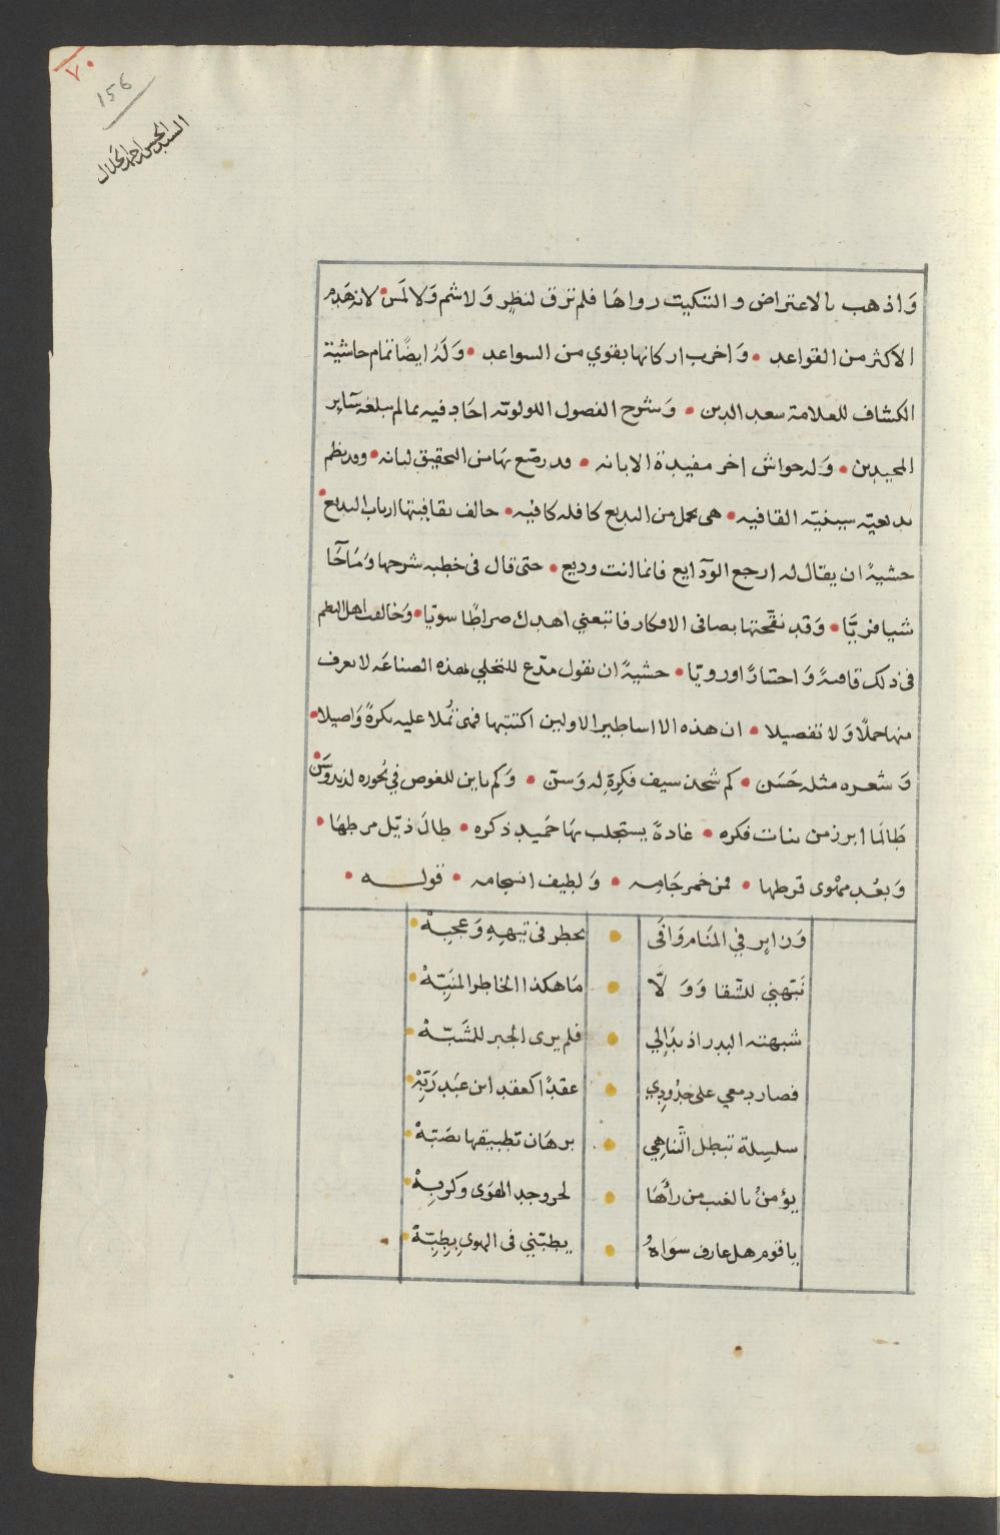 ٧٠
156
السيد الحسن احمد الجلال
وَاذهب بالاعتراض والتنكيت رواهَا فلم ترق لنظرٍ وَلا شم وَلا لمَس • لانه هَدم
الاكثر من القواعد • وَاخرب اركانها بقوي من السواعد • وَلَهُ ايضًا تمام حاشية
الكشاف للعلامة سعد الدين • وَشرح الفصول اللولويه اجَاد فيه بما لم يبلغه سَاير
المجيدين • وَله حواش اخر مفيدة الابانه • قد رضع بهَا من التحقيق لبانه • وقد نظم
بديعيّه سينيّه القافيه • هى بحمل من البديع كافله كافيه • خالف بقافيتها ارباب البديع •
خشيةً ان يقال له ارجع الودَايع فانما انت وديع • حتى قال فى خطبه شرحها وَمَا
شيا فريًّا • وَقد نقّحتها بصافى الافكار فاتبعني اهدك صراطًا سويًا • وَخالفت اهل النظم
فى ذلك قافيةً وَاختيارًا ورويّا • خشيةً ان يقول مدّع للتحلي بهذه الصناعَه لا يعرف
منها جملًا وَلا تفصيلا • ان هذه الا اساطير الاولين اكتتبها فهى تُملا عليه بكرةً وَاصيلا •
وَشعره مثله حَسَن • كم شحذ سيف فكرِة له وَسنّ • وَكم باين للغوص في بُحوره لذيذ وَسَن •
طَالما ابرز من بنات فكره • غادةً يستجلب بهَا حَميد ذكره • طالَ ذيّل مرطهَا •
وَبعُد مهْوى قرطها • فمن خمر جَامه • وَلطيف انسجامه • قولـــه •
وَزاير في المنَام وَافَى • يخطر فى تيههِ وَعجبِهْ •
نَبّهني للشّقا وَوَلَّا • مَا هكذا الخاطر المنَبِّهْ •
شبهته البدر اذ بدَا لي • فلم يرى الجبر للمشَبّهْ •
فصار دمعي على خدُودِي • عقدًا كعقد ابن عَبد رَبّهْ •
سلسِلة تبطل التّناهِي • برهَان تطبيقها بصَبّهْ •
يؤمنُ بالغيب من رآهَا • لحر وجد الهوَى وكربِهْ •
يا قوم هل عارف سوَاهُ • يطبّني فى الهوى بِطِبّهْ •